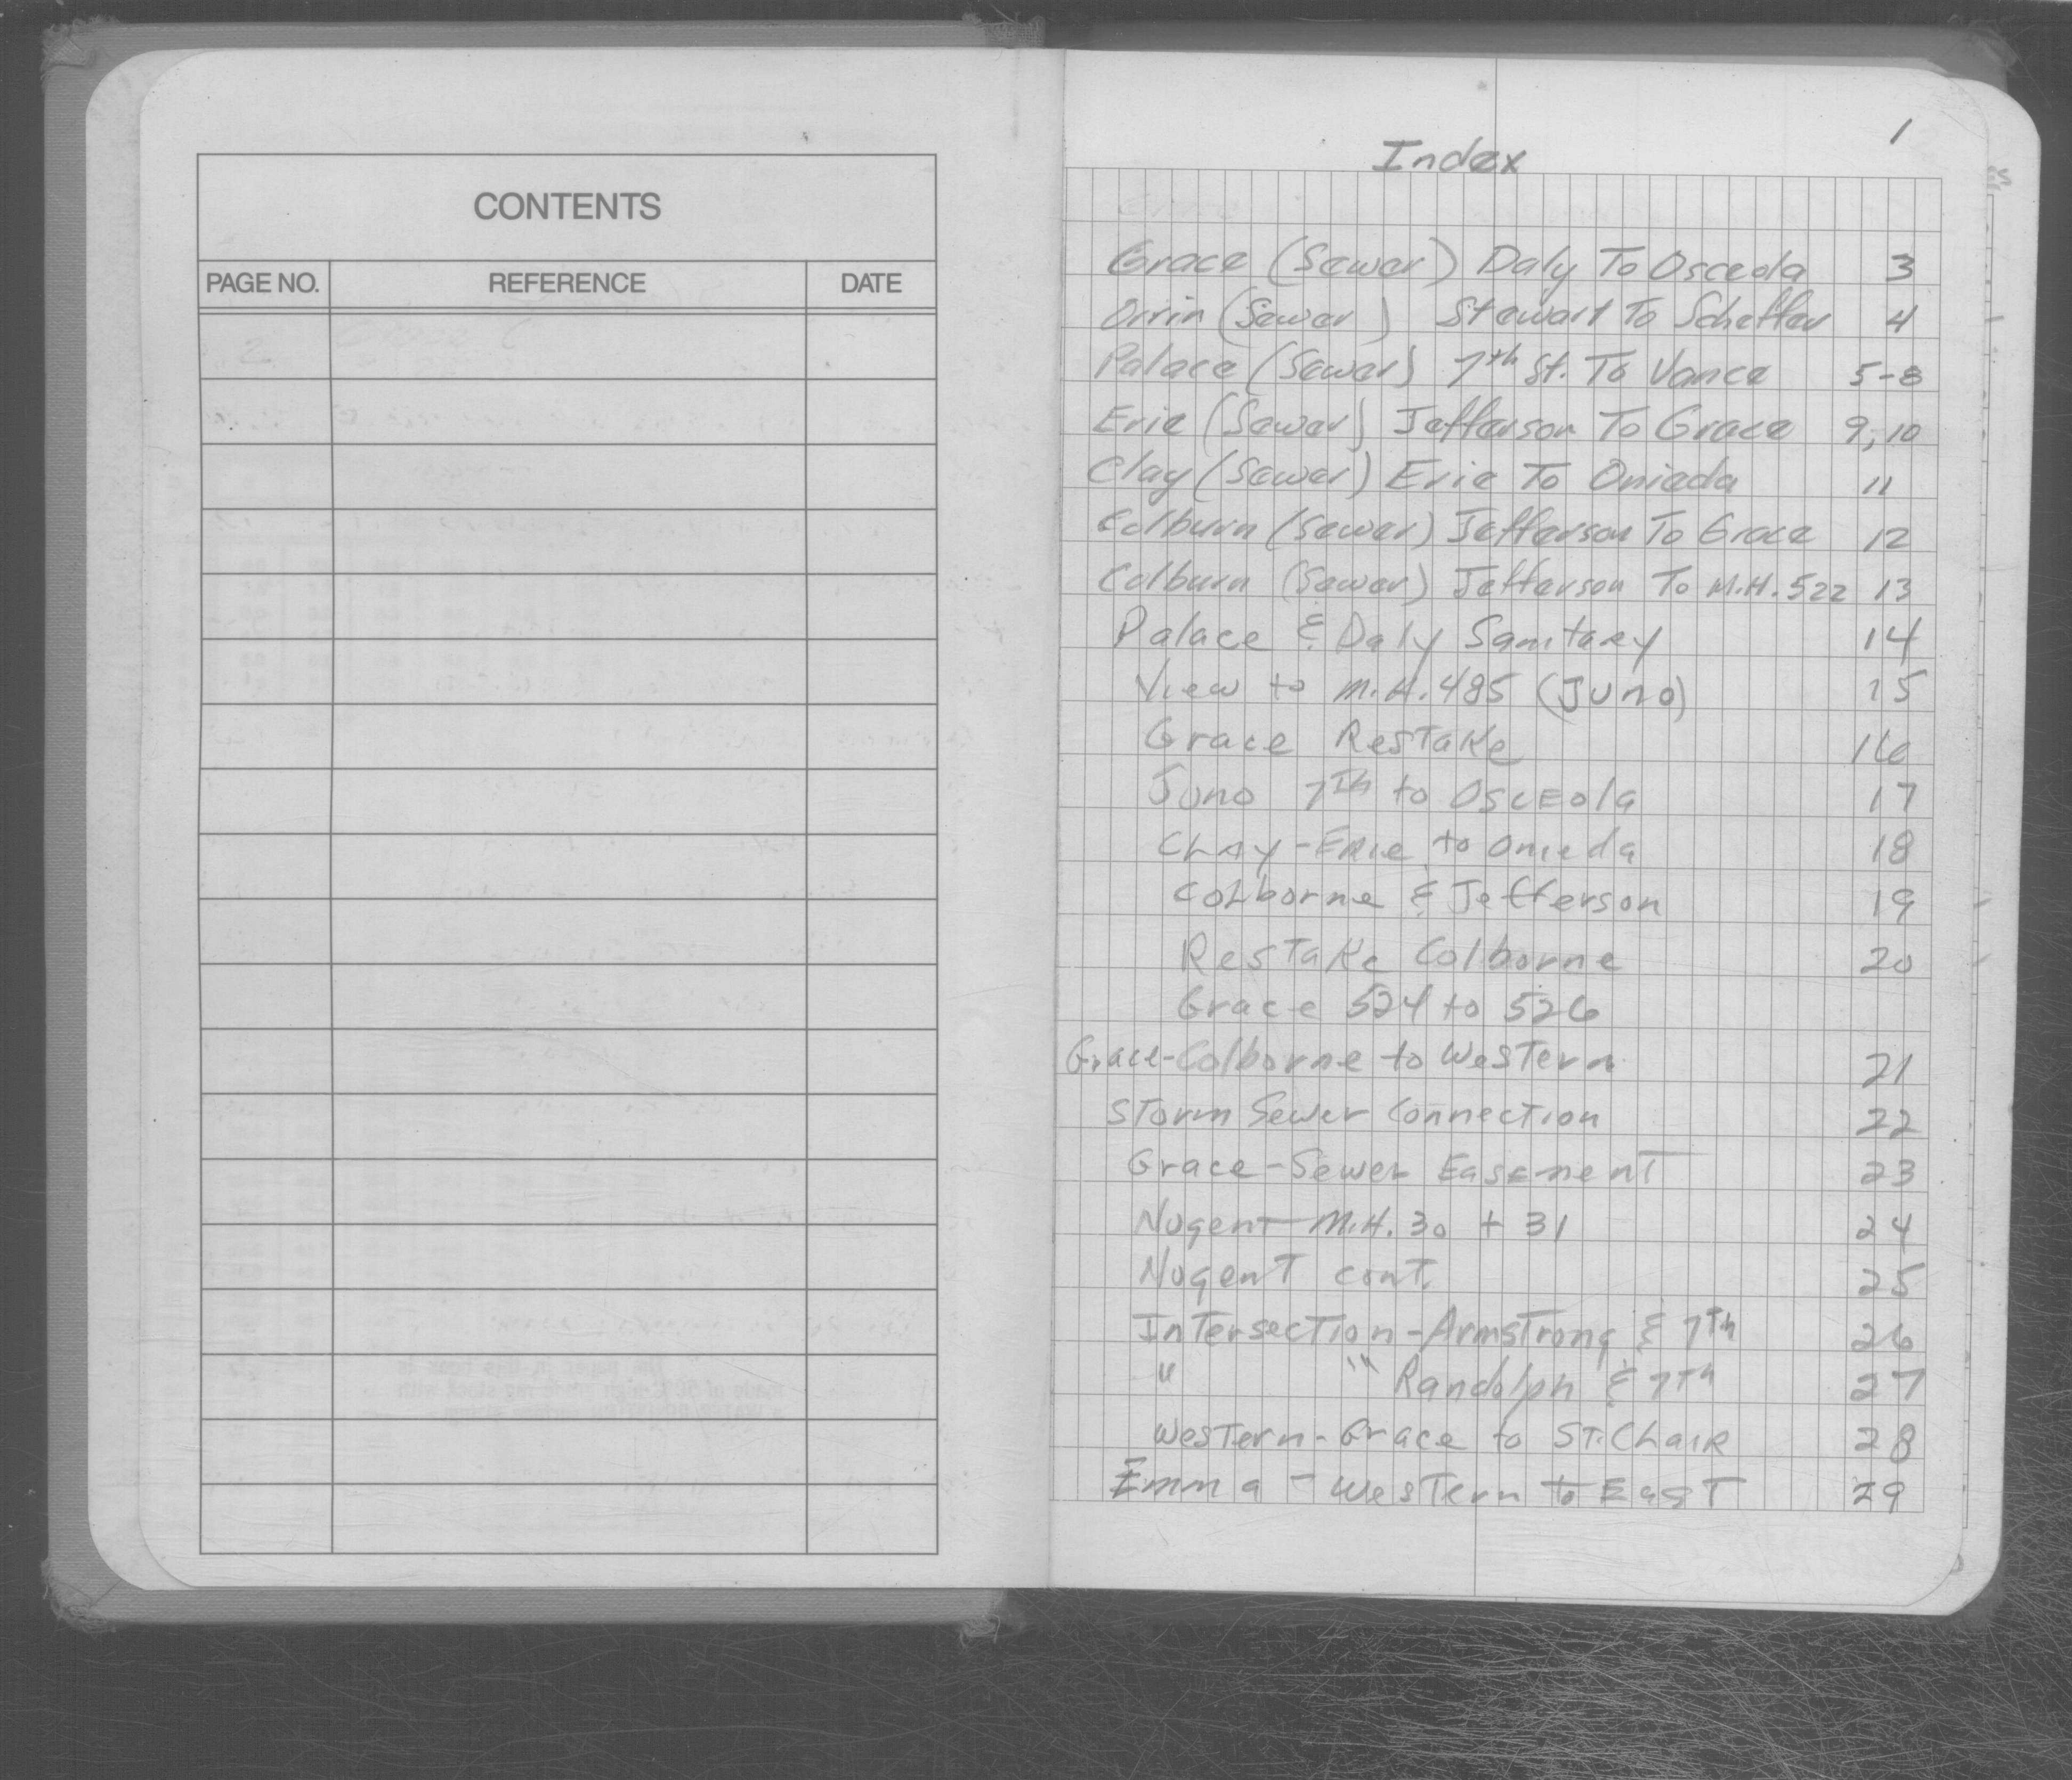 CONTENTS
PAGE NO. REFERENCE DATE
2
1
Index
Grace (Sewer) Daly To Osceola 3
Orrin (Sewer) Stewart To Scheffer 4
Palace (Sewer) 7th St. To Vance 5-8
Erie (Sewer) Jefferson To Grace 9, 10
Clay (Sewer) Erie To Onieda 11
Colburn (Sewer) Jefferson To Grace 12
Colburn (Sewer) Jefferson To M.H. 522 13
Palace & Daly Sanitary 14
View to M.H. 485 (Juno) 15
Grace Restake 16
Juno 7th to Osceola 17
Clay - Erie to Onieda 18
Colborne & Jefferson 19
Restake Colborne 20
Grace 524 to 526
Grace-Colborne to Western 21
Storm Sewer Connection 22
Grace-Sewer Easement 23
Nugent M.H. 30 + 31 24
Nugent cont. 25
Intersection-Armstrong & 7th 26
" " Randolph & 7th 27
Western-Grace to St. Chair 28
Emma - Western to East 29